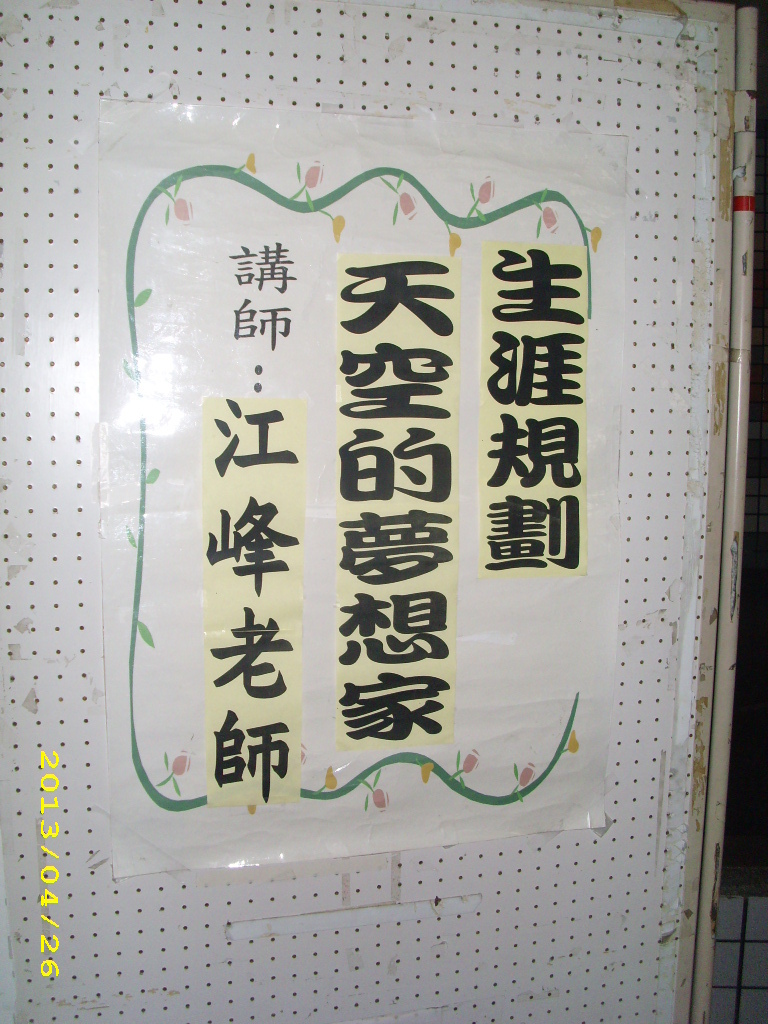 生涯規劃
天空的夢想家
講師：江峰老師
2013/04/26